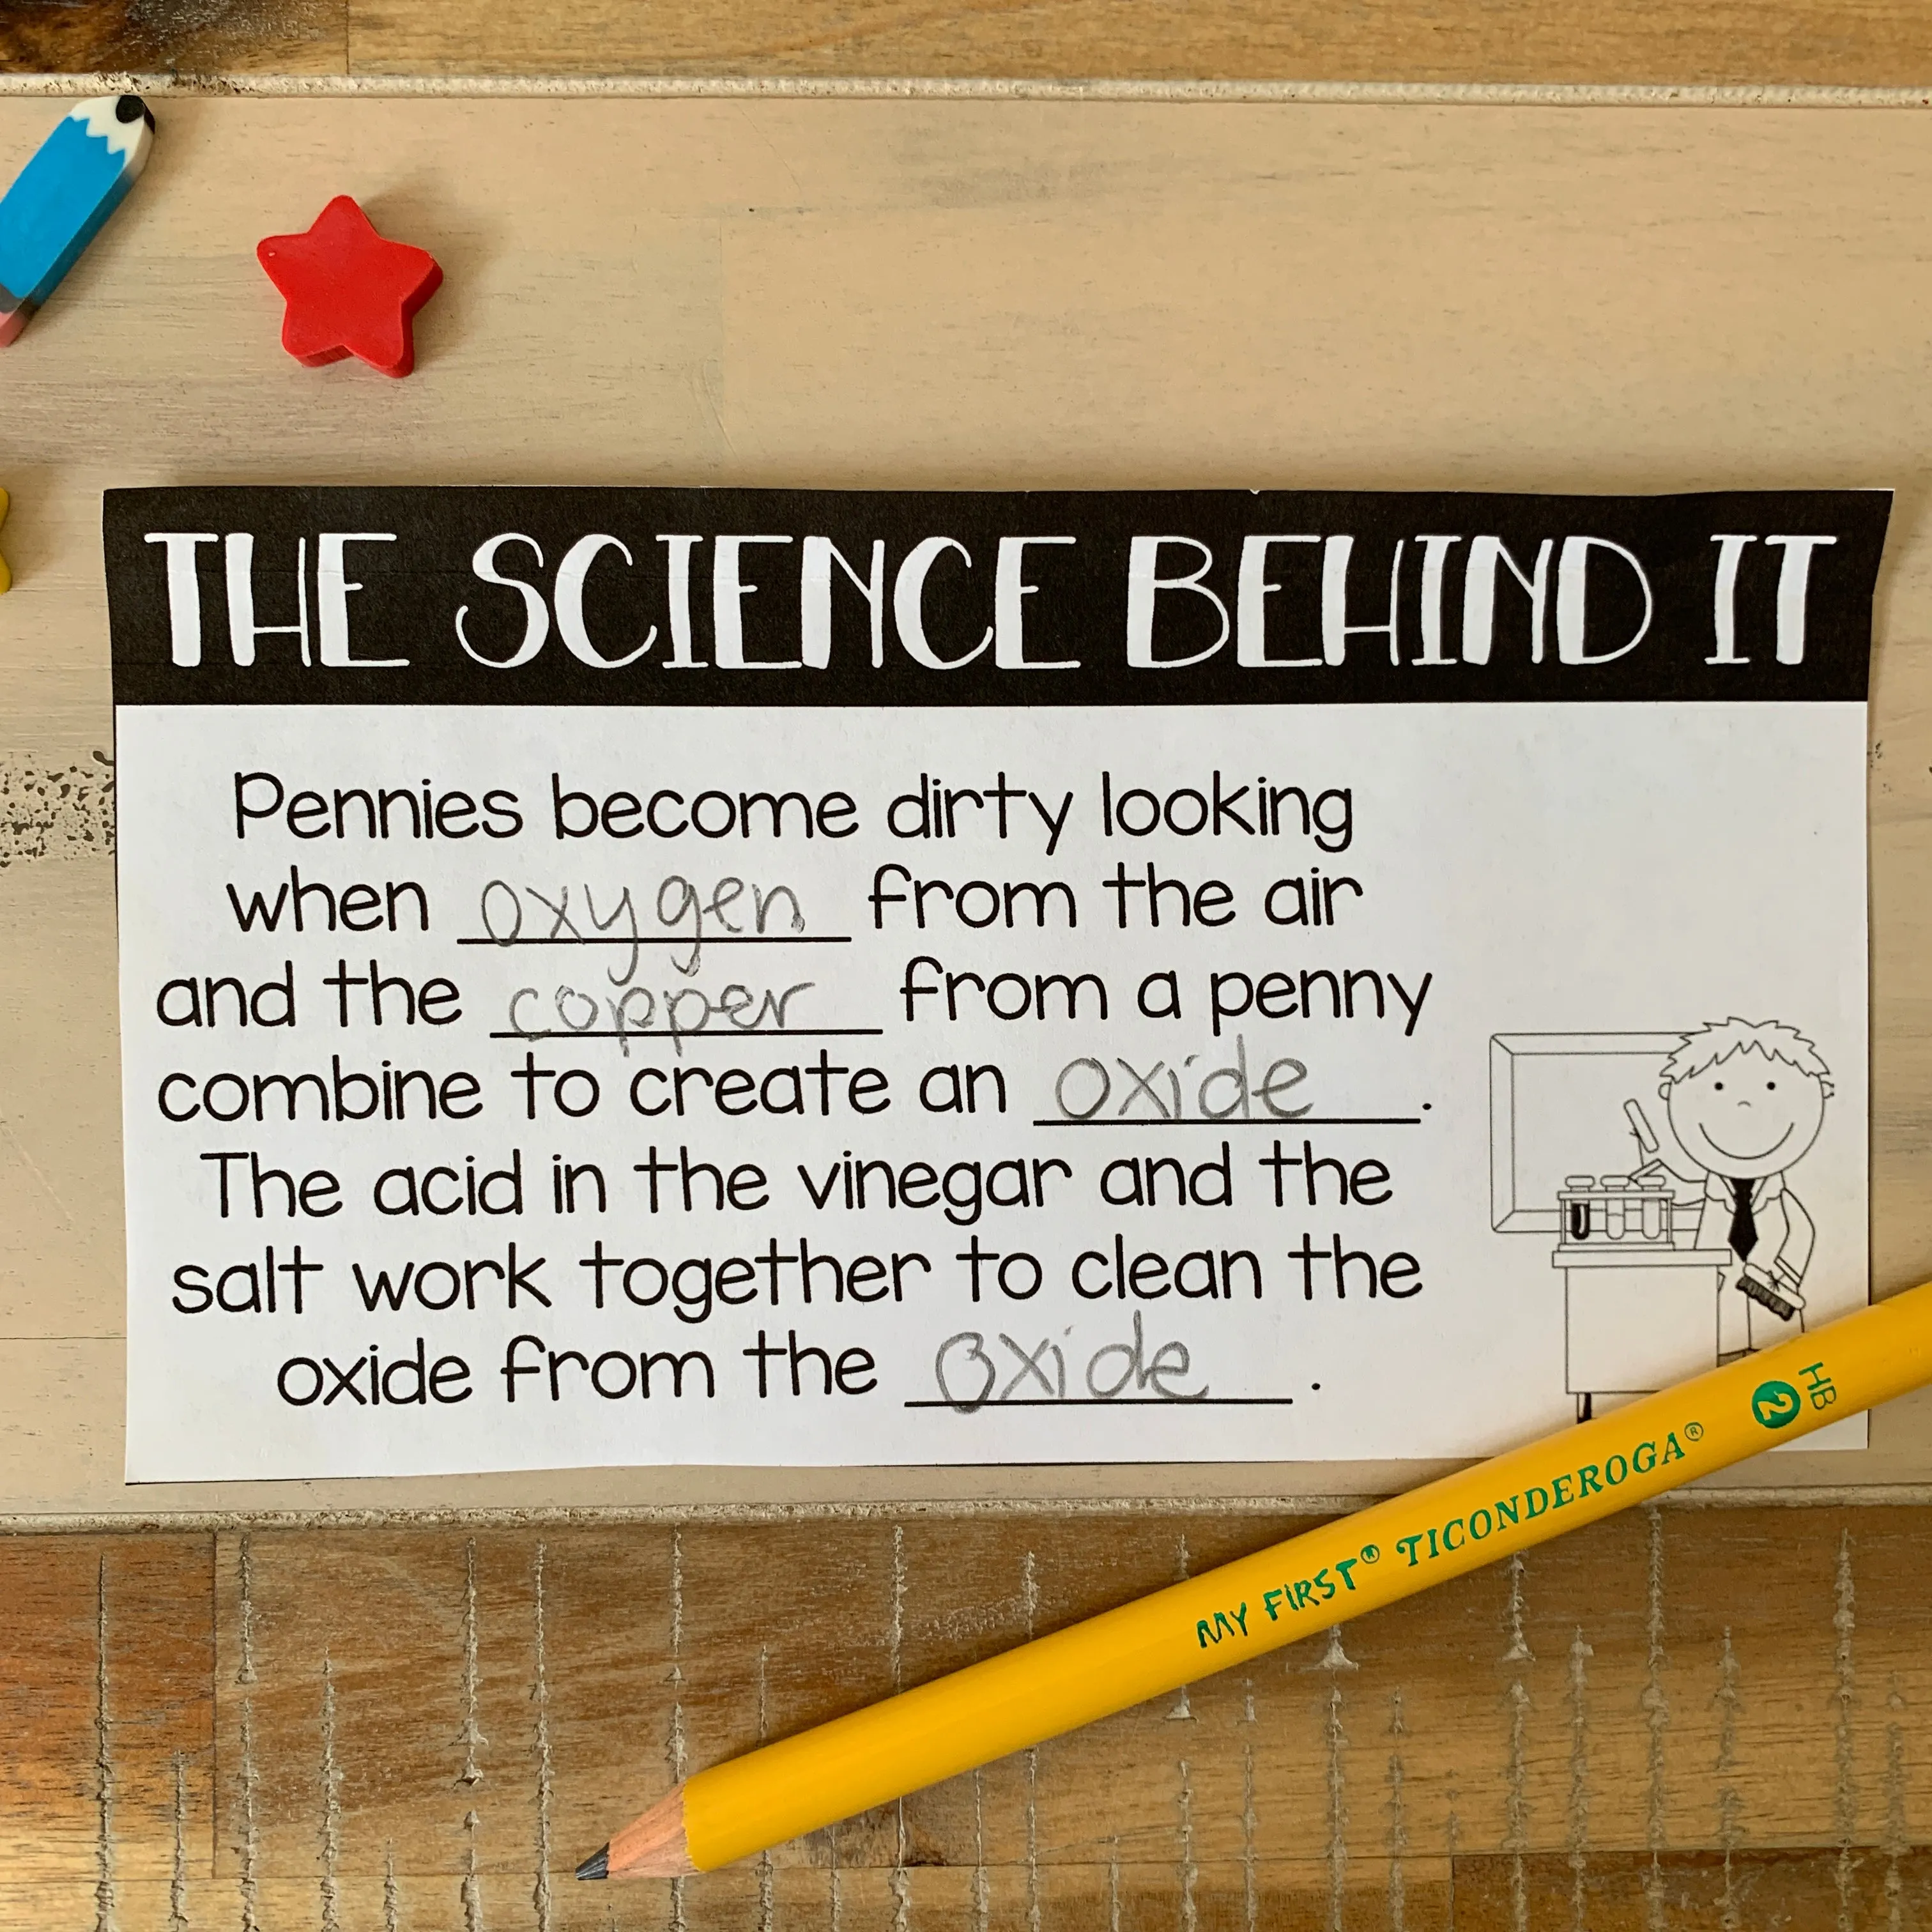 THE SCIENCE BEHIND IT
Pennies become dirty looking
when oxygen from the air
and the copper from a penny
combine to create an oxide.
The acid in the vinegar and the
salt work together to clean the
oxide from the oxide.
MY FIRST® TICONDEROGA® 2 HB